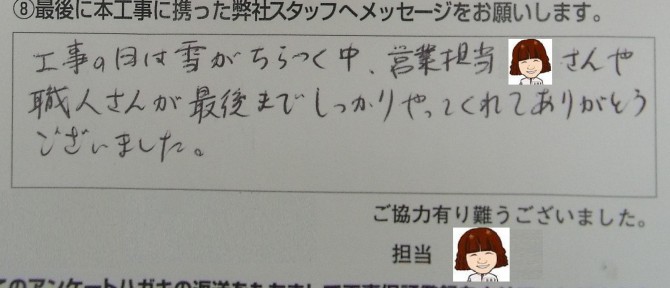 ⑧最後に本工事に携った弊社スタッフへメッセージをお願いします。
工事の日は雪がちらつく中、営業担当 さんや
職人さんが最後までしっかりやってくれてありがとう
ございました。
ご協力有り難うございました。
担当